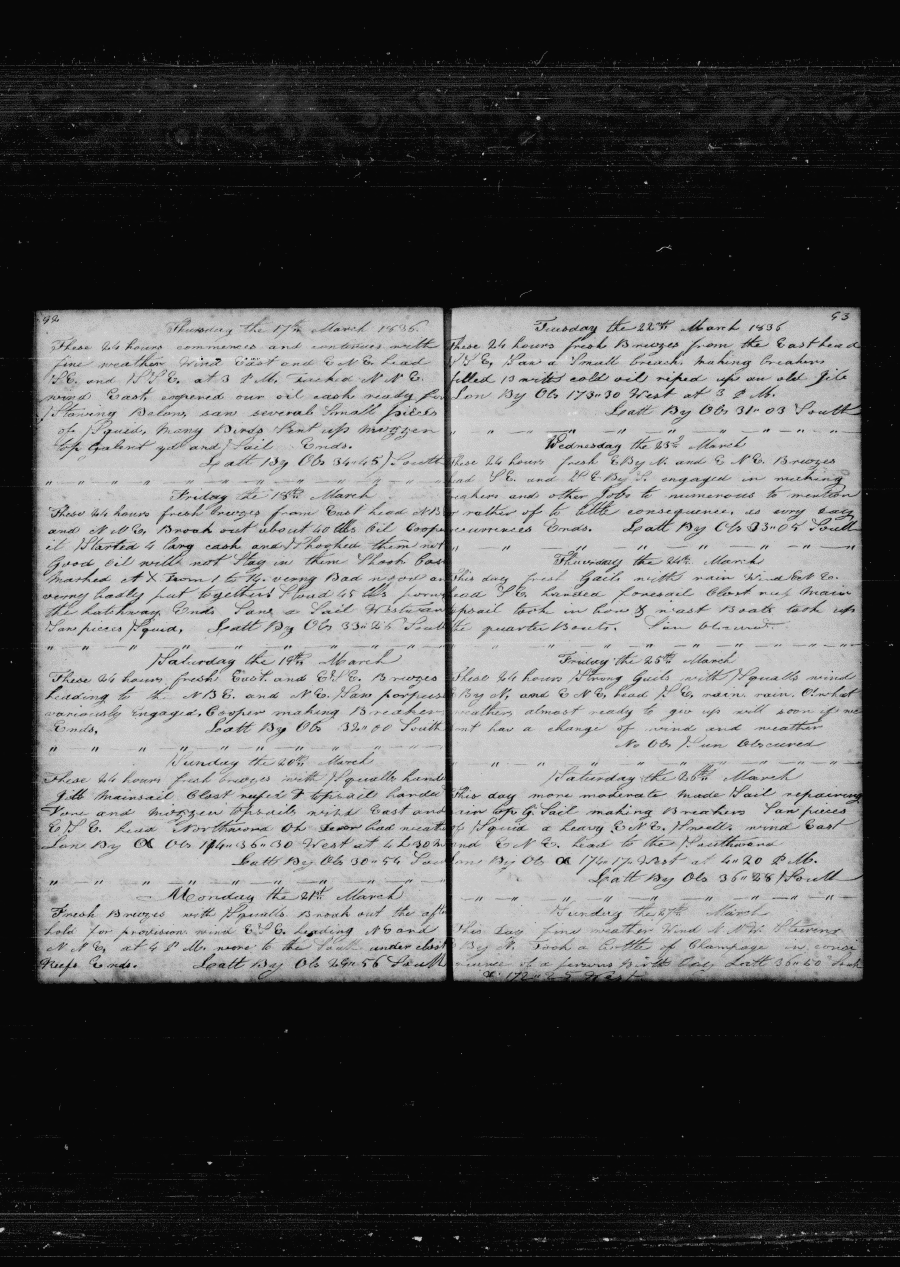 92
Thursday the 17th March 1836
These 24 hours commences and continues with
fine weather Wind East and E N E. head
S.E. and S S E. at 3 P M. Tacked N N E.
wind East, coopered our oil cask ready for
Stowing Below, saw several small pieces
of Squid, Many Birds Sent up Mizzen
top Galent yd and Sail Ends.
Latt By Obs 34"45 South
Friday the 18th March
These 24 hours fresh brezes from East head N B
and N N E, Broak out about 40 bbs Oil Coope
it Started 4 larg cask and Shooked them
Good oil will not Stay in them Shook Cas
Marked A X from 1 to verry Bad wood an
verry badly put together Stowd 45 bbs
the hatchway Ends. Saw a Sail
Saw pieces Squid, Latt By Obs 33"26 South
Saturday the 19th March
These 24 hours fresh East and E S E. Brezes
heading to the N B E. and N E. Saw porpuses
variously engaged, Cooper making Breaker
Ends, Latt By Obs 32"00 South
Sunday the 20th March
These 24 hours fresh brezes with Squalls hand
Jibb Mainsail Close reefed T topsail handed
Fore and mizzen topsails wind East and
E S E. head Northword Oh bad weath
Lon By Obs 174"36"30 West at 4 h 30 m
Latt By Obs 30"54 Sou
Monday the 21st March
Fresh Brezes with Squalls Broak out the aft
hold for provision wind E S E. heading N E and
N N E, at 4 P M. wore to the South under close
Reefs Ends. Latt By Obs 29"56 South
93
Tuesday the 22nd March 1836
These 24 hours fresh Brezes from the East head
S S E, Has a Small breach. Making breakers
filled 13 with cold oil riped up an old Jib
Lon By Obs 173"30 West at 3 P M.
Latt By Obs 31"03 South
Wednesday the 23d March
These 24 hours fresh E By N. and E N E. Brezes
head S E. and S E By S. engaged in making
eakers and other Jobs to numerous to mention
or rather of to little consequence, as evry day
currences Ends. Latt By Obs 33"05 South
Thursday the 24th March
This day fresh Gails with rain Wind E N E.
head S E. handed foresail Close reef Main
topsail took in bow & wast Boats took up
the quarter Boats. Sun Obscured.
Friday the 25th March
These 24 hours Strong Gails with Squalls wind
E By N, and E N E. head S E. rain. rain. O! what
weather, almost ready to give up will soon if we
ent has a change of wind and weather
No Obs Sun Obscured
Saturday the 26th March
This day more moderate made Sail repairing
top G. Sail making Breakers Saw pieces
of Squid a heavy E N E. Swell, wind East
and E N E. head to the Southward
Lon By Obs 174"17. West at 4"20 P M.
Latt By Obs 36"28 South
Sunday the 27th March
This Day fine weather Wind N N W. Steering
By N. Took a Bottle of Champage in
of a persons Birth Day, Latt 36"50 South
172"45 West